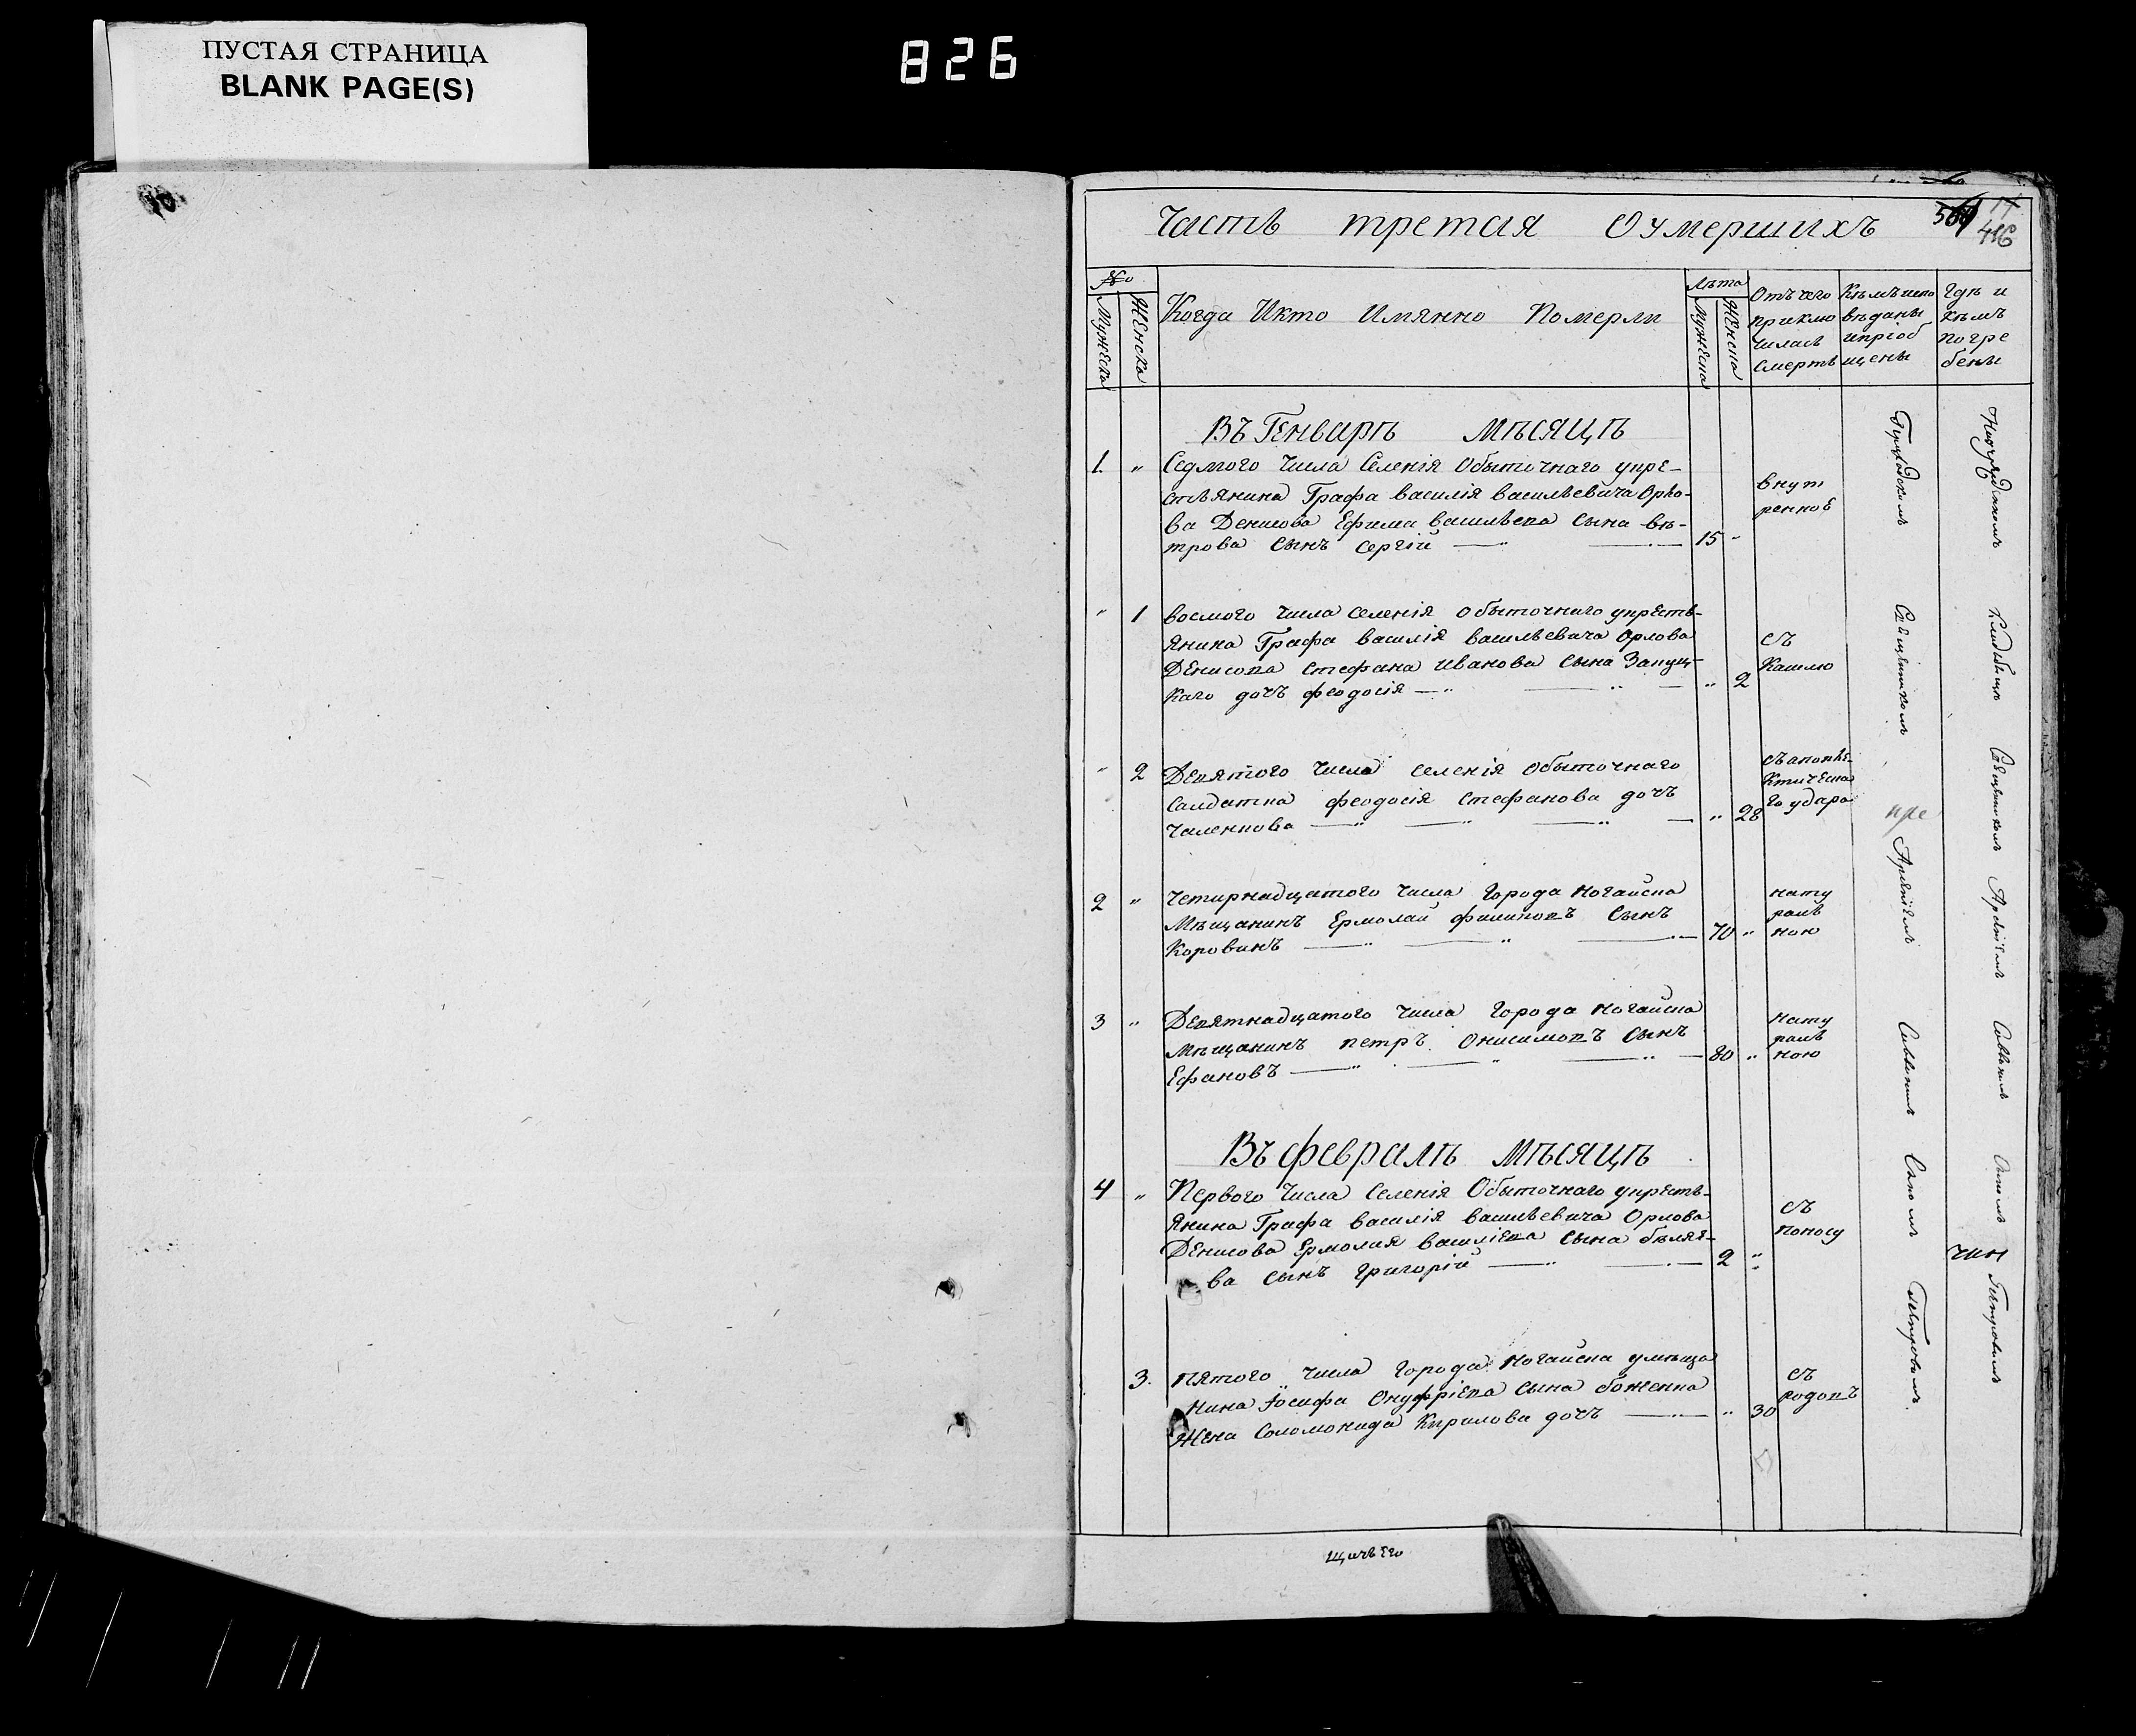 ПУСТАЯ СТРАНИЦА
BLANK PAGE(S)
826
Часть третая Оумершихъ
416
№
Мужеска
Женска
Когда Икто Имянно Померли
лѣта
Мужеска
Женска
Отъ чего
приклю
чилась
смерть
Кѣмъ испо
вѣданы
ипріоб
щены
Гдѣ и
кѣмъ
погре
бены
Въ Генварѣ Мѣсяцѣ
1. " Седмого числа Селенія Обыточнаго укре-
стьянина Графа василія васильевича Орло-
ва Денисова Ефима васильева Сына вѣ-
трова Сынъ Сергій 15 "
внут
ренноѣ
" 1 восмого числа селенія обыточнаго укресть-
янина Графа василія васильевича Орлова
Денисова Стефана иванова Сына Запуц-
каго дочъ феодосія " 2
съ
Кашлю
" 2 Девятого числа селенія обыточнаго
Салдатка феодосія Стефанова дочъ
Чаленкова " 28
съ апопле-
ктическа
го удара
2 " Четирнадцатого числа Города Ногайска
Мѣщанинъ Ермолай филиповъ Сынъ
Коровинъ 70 "
нату
раль
ною
3 " Девятнадцатого числа Города Ногайска
Мѣщанинъ петръ Онисимовъ Сынъ
Ефановъ 80 "
нату
раль
ною
Въ февралѣ Мѣсяцѣ
4 " Первого числа Селенія Обыточнаго укресть-
янина Графа василія васильевича Орлова
Денисова Ермолая василіева Сына бѣляе-
ва Сынъ Григорій 2 "
съ
поносу
3. пятого числа Города Ногайска умѣща
нина Іосифа Онуфріева Сына боженка
Жена Соломонида Кирилова дочъ " 30
съ
родовъ
Городскомъ
Священникомъ
Арсеніемъ
Саввинымъ
Петровымъ
Нагородскомъ
Кладбищѣ
Священникомъ
Арсеніемъ
Петровымъ